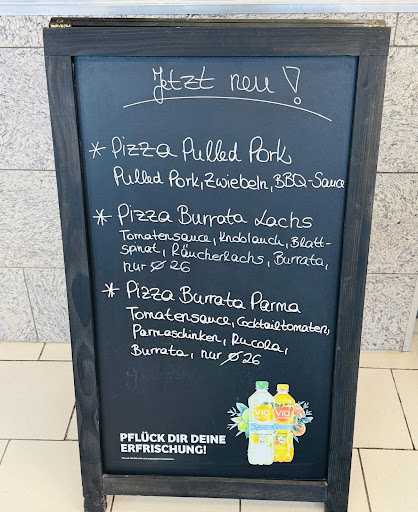 Jetzt neu!
* Pizza Pulled Pork
Pulled Pork, Zwiebeln, BBQ-Sauce
* Pizza Burrata Lachs
Tomatensauce, Knoblauch, Blatt-
spinat, Räucherlachs, Burrata,
nur ⌀ 26
* Pizza Burrata Parma
Tomatensauce, Cocktailtomaten,
Parmaschinken, Rucola,
Burrata, nur ⌀ 26
ViO
ViO
PFLÜCK DIR DEINE
ERFRISCHUNG!